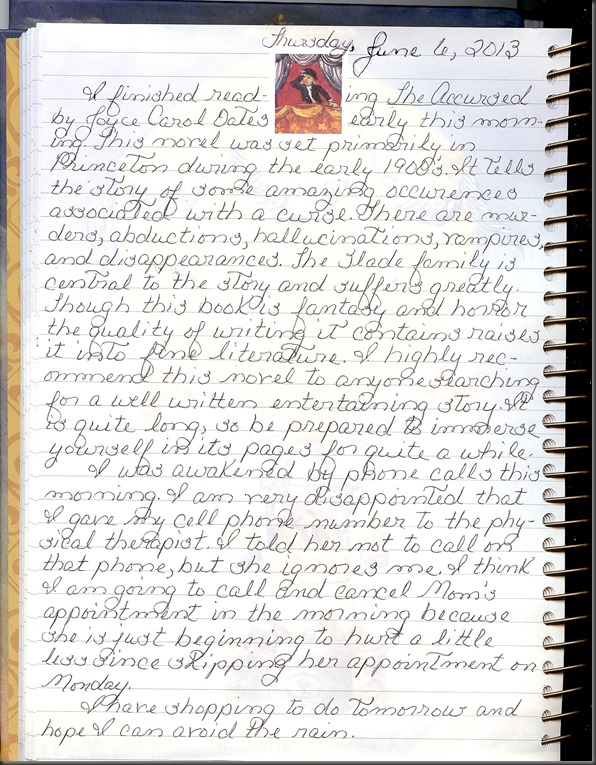 Thursday, June 6, 2013
I finished reading The Accursed
by Joyce Carol Oates early this morn-
ing. This novel was set primarily in
Princeton during the early 1900's. It tells
the story of some amazing occurences
associated with a curse. There are mur-
ders, abductions, hallucinations, vampires,
and disappearances. The Slade family is
central to the story and suffers greatly.
Though this book is fantasy and horror
the quality of writing it contains raises
it into fine literature. I highly rec-
ommend this novel to anyone searching
for a well written entertaining story. It
is quite long, so be prepared to immerse
yourself in its pages for quite a while.
I was awakened by phone calls this
morning. I am very disappointed that
I gave my cell phone number to the phy-
sical therapist. I told her not to call on
that phone, but she ignores me. I think
I am going to call and cancel Mom's
appointment in the morning because
she is just beginning to hurt a little
less since skipping her appointment on
Monday.
I have shopping to do tomorrow and
hope I can avoid the rain.